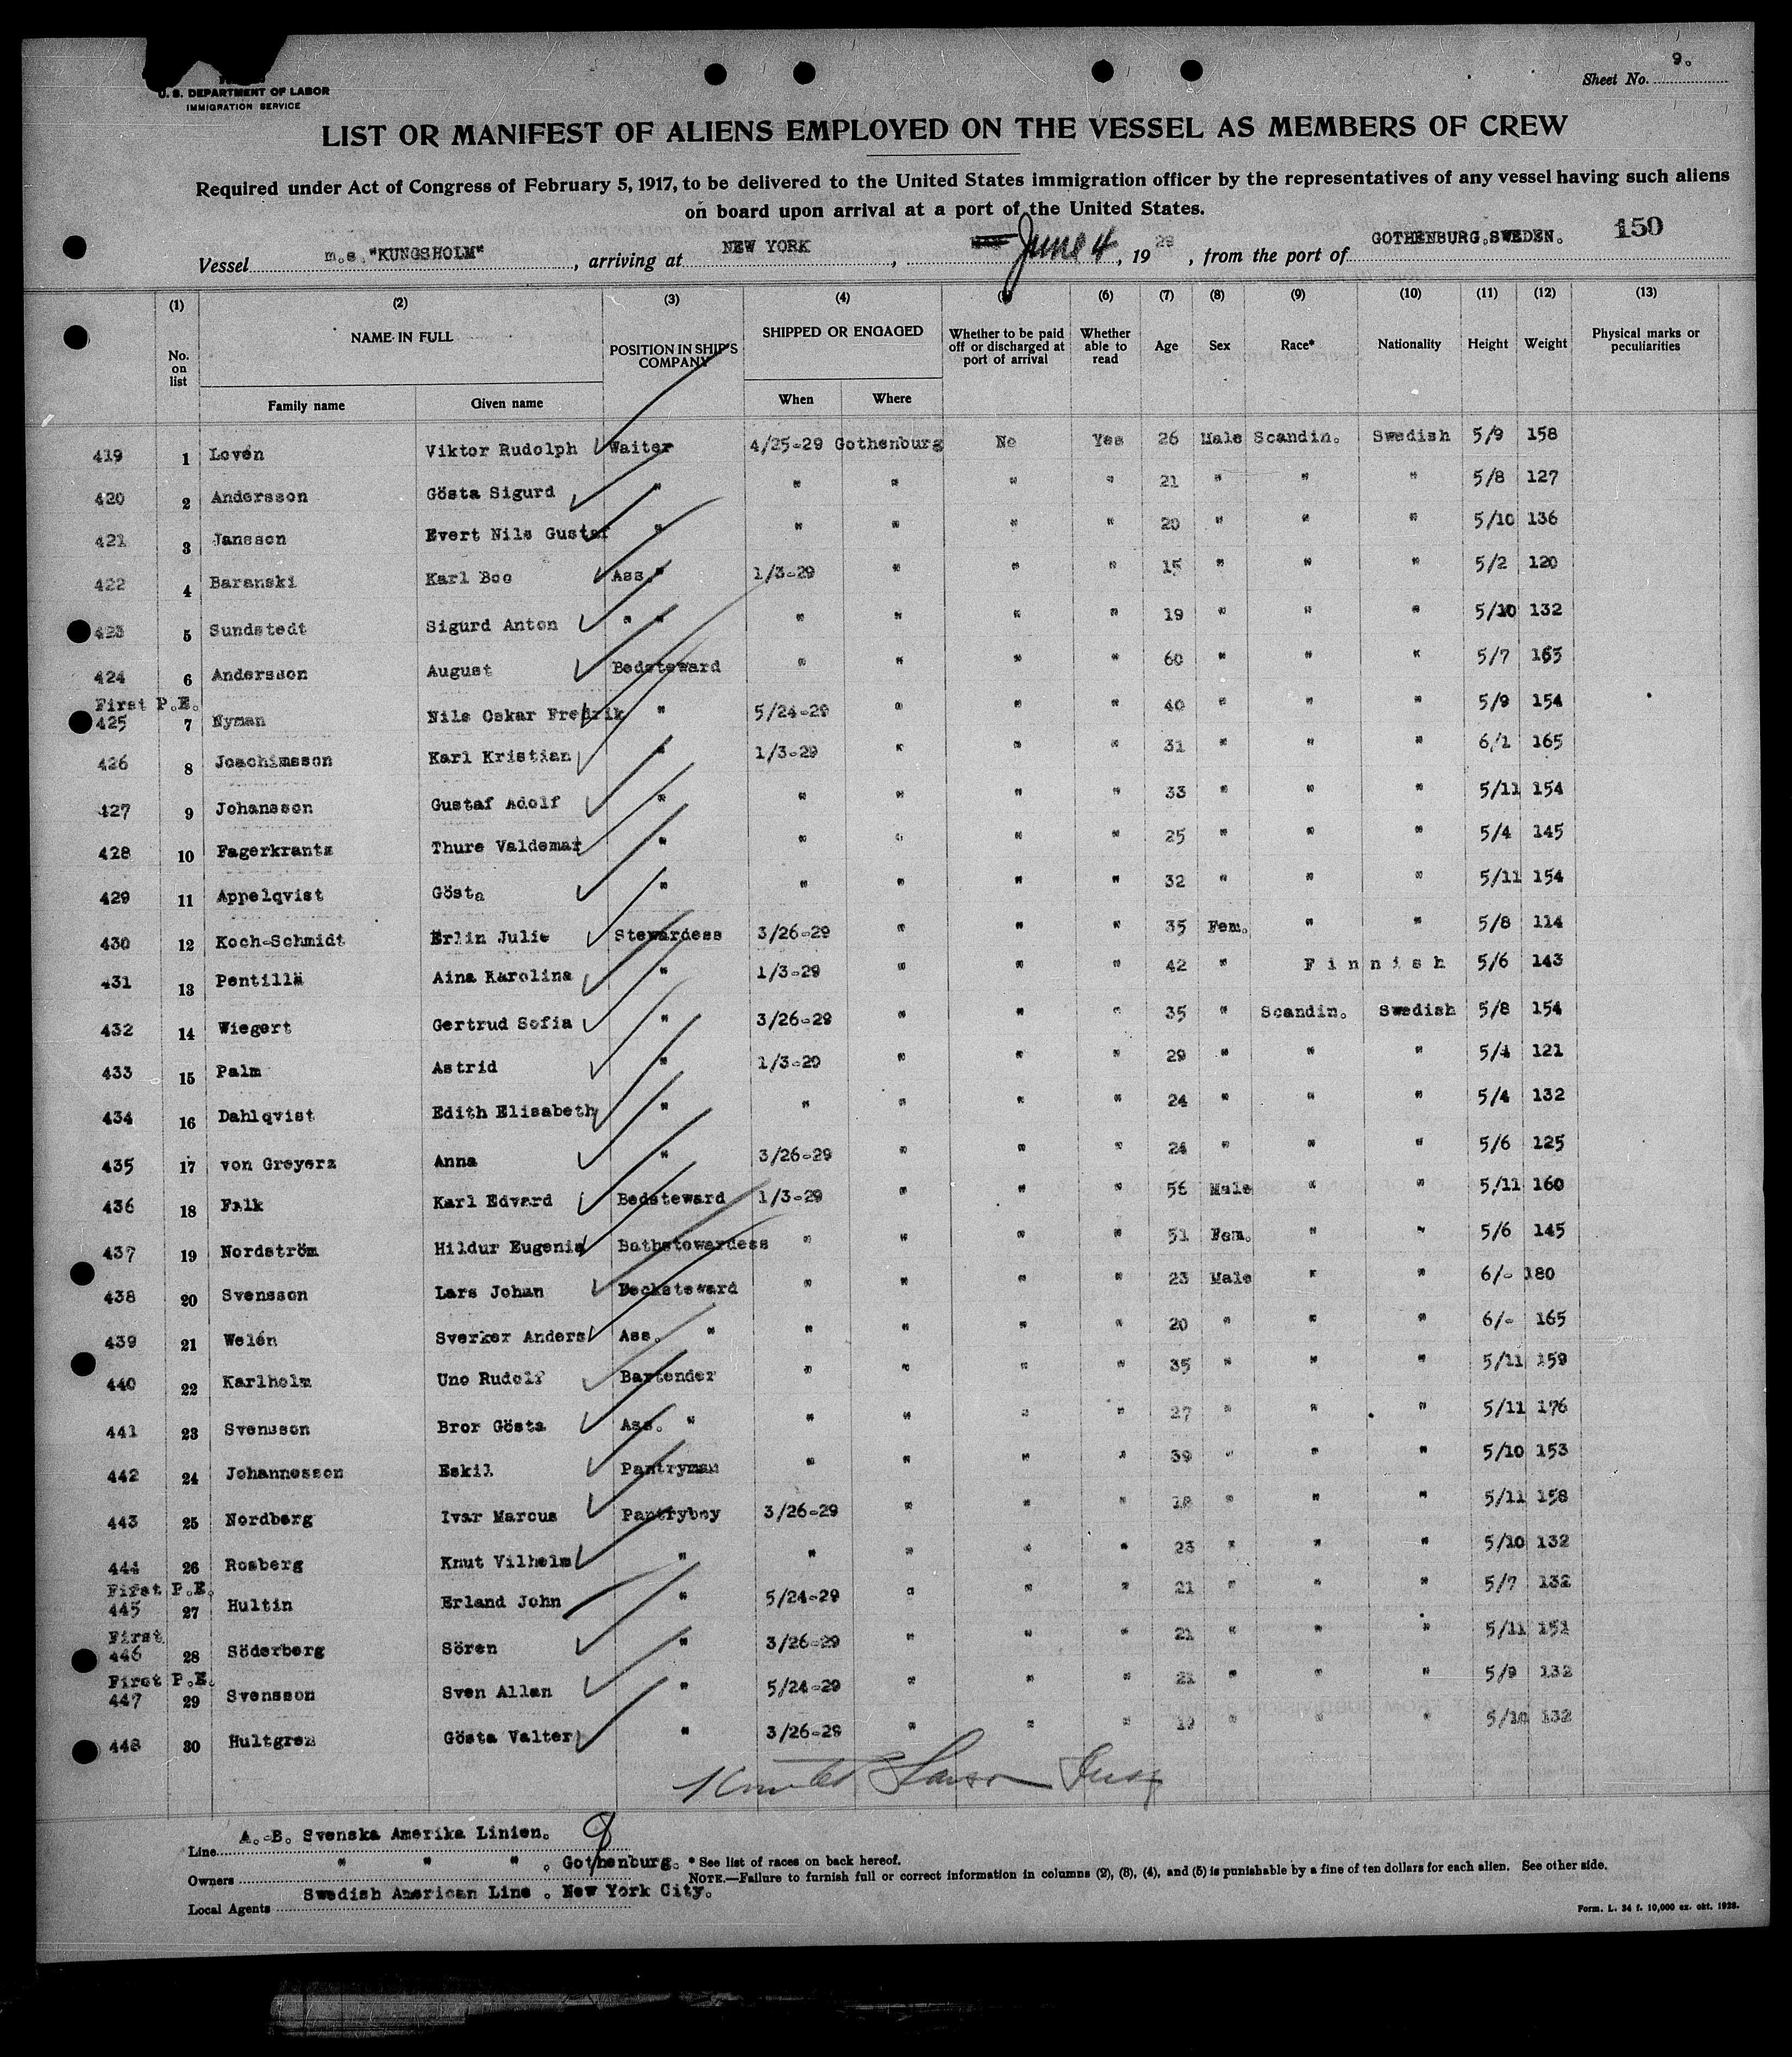 Sheet No. 9.
U. S. DEPARTMENT OF LABOR
IMMIGRATION SERVICE
LIST OR MANIFEST OF ALIENS EMPLOYED ON THE VESSEL AS MEMBERS OF CREW
Required under Act of Congress of February 5, 1917, to be delivered to the United States immigration officer by the representatives of any vessel having such aliens
on board upon arrival at a port of the United States.
150
Vessel m.s. "KUNGSHOLM", arriving at NEW YORK, June 4, 1929, from the port of GOTHENBURG.SWEDEN.
(1) (2) (3) (4) (6) (7) (8) (9) (10) (11) (12) (13)
No. on list NAME IN FULL POSITION IN SHIP'S COMPANY SHIPPED OR ENGAGED Whether to be paid off or discharged at port of arrival Whether able to read Age Sex Race* Nationality Height Weight Physical marks or peculiarities
Family name Given name When Where
419 1 Lovén Viktor Rudolph Waiter 4/25-29 Gothenburg No Yes 26 Male Scandin. Swedish 5/9 158
420 2 Andersson Gösta Sigurd " " " " " 21 " " " 5/8 127
421 3 Jansson Evert Nils Gustaf " " " " " 20 " " " 5/10 136
422 4 Baranski Karl Boo Ass. " 1/3-29 " " " 15 " " " 5/2 120
423 5 Sundstedt Sigurd Anton " " " " " " 19 " " " 5/10 132
424 6 Andersson August Bedsteward " " " " 60 " " " 5/7 165
First P.E.
425 7 Nyman Nils Oskar Fredrik " 5/24-29 " " " 40 " " " 5/9 154
426 8 Joachimsson Karl Kristian " 1/3-29 " " " 31 " " " 6/1 165
427 9 Johansson Gustaf Adolf " " " " " 33 " " " 5/11 154
428 10 Fagerkrantz Thure Valdemar " " " " " 25 " " " 5/4 145
429 11 Appelqvist Gösta " " " " " 32 " " " 5/11 154
430 12 Koch-Schmidt Erlin Julie Stewardess 3/26-29 " " " 35 Fem. " " 5/8 114
431 13 Pentillä Aina Karolina " 1/3-29 " " " 42 " Finnish 5/6 143
432 14 Wiegert Gertrud Sofia " 3/26-29 " " " 35 " Scandin. Swedish 5/8 154
433 15 Palm Astrid " 1/3-29 " " " 29 " " " 5/4 121
434 16 Dahlqvist Edith Elisabeth " " " " " 24 " " " 5/4 132
435 17 von Greyerz Anna " 3/26-29 " " " 24 " " " 5/6 125
436 18 Falk Karl Edvard Bedsteward 1/3-29 " " " 56 Male " " 5/11 160
437 19 Nordström Hildur Eugenia Bathstewardess " " " " 51 Fem. " " 5/6 145
438 20 Svensson Lars Johan Decksteward " " " " 23 Male " " 6/- 180
439 21 Welén Sverker Anders Ass. " " " " " 20 " " " 6/- 165
440 22 Karlholm Uno Rudolf Bartender " " " " 35 " " " 5/11 159
441 23 Svensson Bror Gösta Ass. " " " " " 27 " " " 5/11 176
442 24 Johannesson Eskil Pantryman " " " " 39 " " " 5/10 153
443 25 Nordberg Ivar Marcus Pantryboy 3/26-29 " " " 18 " " " 5/11 158
444 26 Rosberg Knut Vilhelm " " " " " 23 " " " 5/10 132
First P.E.
445 27 Hultin Erland John " 5/24-29 " " " 21 " " " 5/7 132
First
446 28 Söderberg Sören " 3/26-29 " " " 21 " " " 5/11 151
First P.E.
447 29 Svensson Sven Allan " 5/24-29 " " " 21 " " " 5/9 132
448 30 Hultgren Gösta Valter " 3/26-29 " " " 19 " " " 5/10 132
Line A.-B. Svenska Amerika Linien.
Owners " " " . Gothenburg. * See list of races on back hereof.
NOTE.—Failure to furnish full or correct information in columns (2), (3), (4), and (5) is punishable by a fine of ten dollars for each alien. See other side.
Local Agents Swedish American Line . New York City.
Form. L. 34 f. 10,000 ex. okt. 1928.